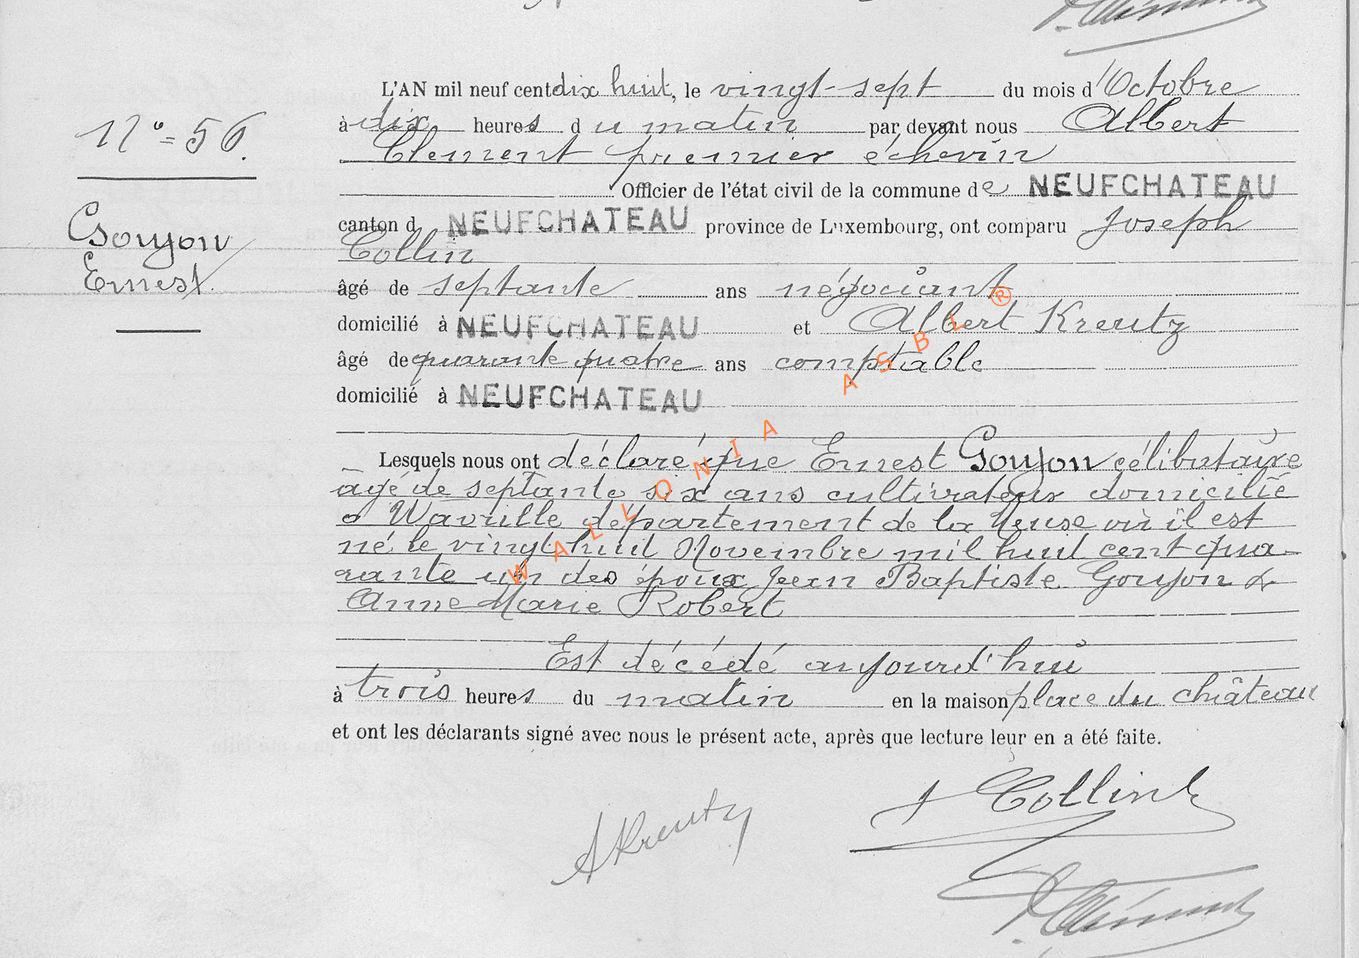 L'AN mil neuf cent dix huit, le vingt-sept du mois d'Octobre
à dix heures du matin par devant nous Albert
Clement premier échevin
Officier de l'état civil de la commune de NEUFCHATEAU
canton d NEUFCHATEAU province de Luxembourg, ont comparu Joseph
Collin
âgé de septante ans négociant
domicilié à NEUFCHATEAU et Albert Kreutz
âgé de quarante quatre ans comptable
domicilié à NEUFCHATEAU
N° = 56.
Goujon
Ernest
Lesquels nous ont déclaré que Ernest Goujon célibataire
âgé de septante six ans cultivateur domicilié
à Wavrille département de la Meuse où il est
né le vingt huit Novembre mil huit cent qua-
rante un des époux Jean Baptiste Goujon &
Anne Marie Robert
Est décédé aujourd'hui
à trois heures du matin en la maison place du château
et ont les déclarants signé avec nous le présent acte, après que lecture leur en a été faite.
J Collin
AKreutz
A Clément
WALLONIA ASBL ®